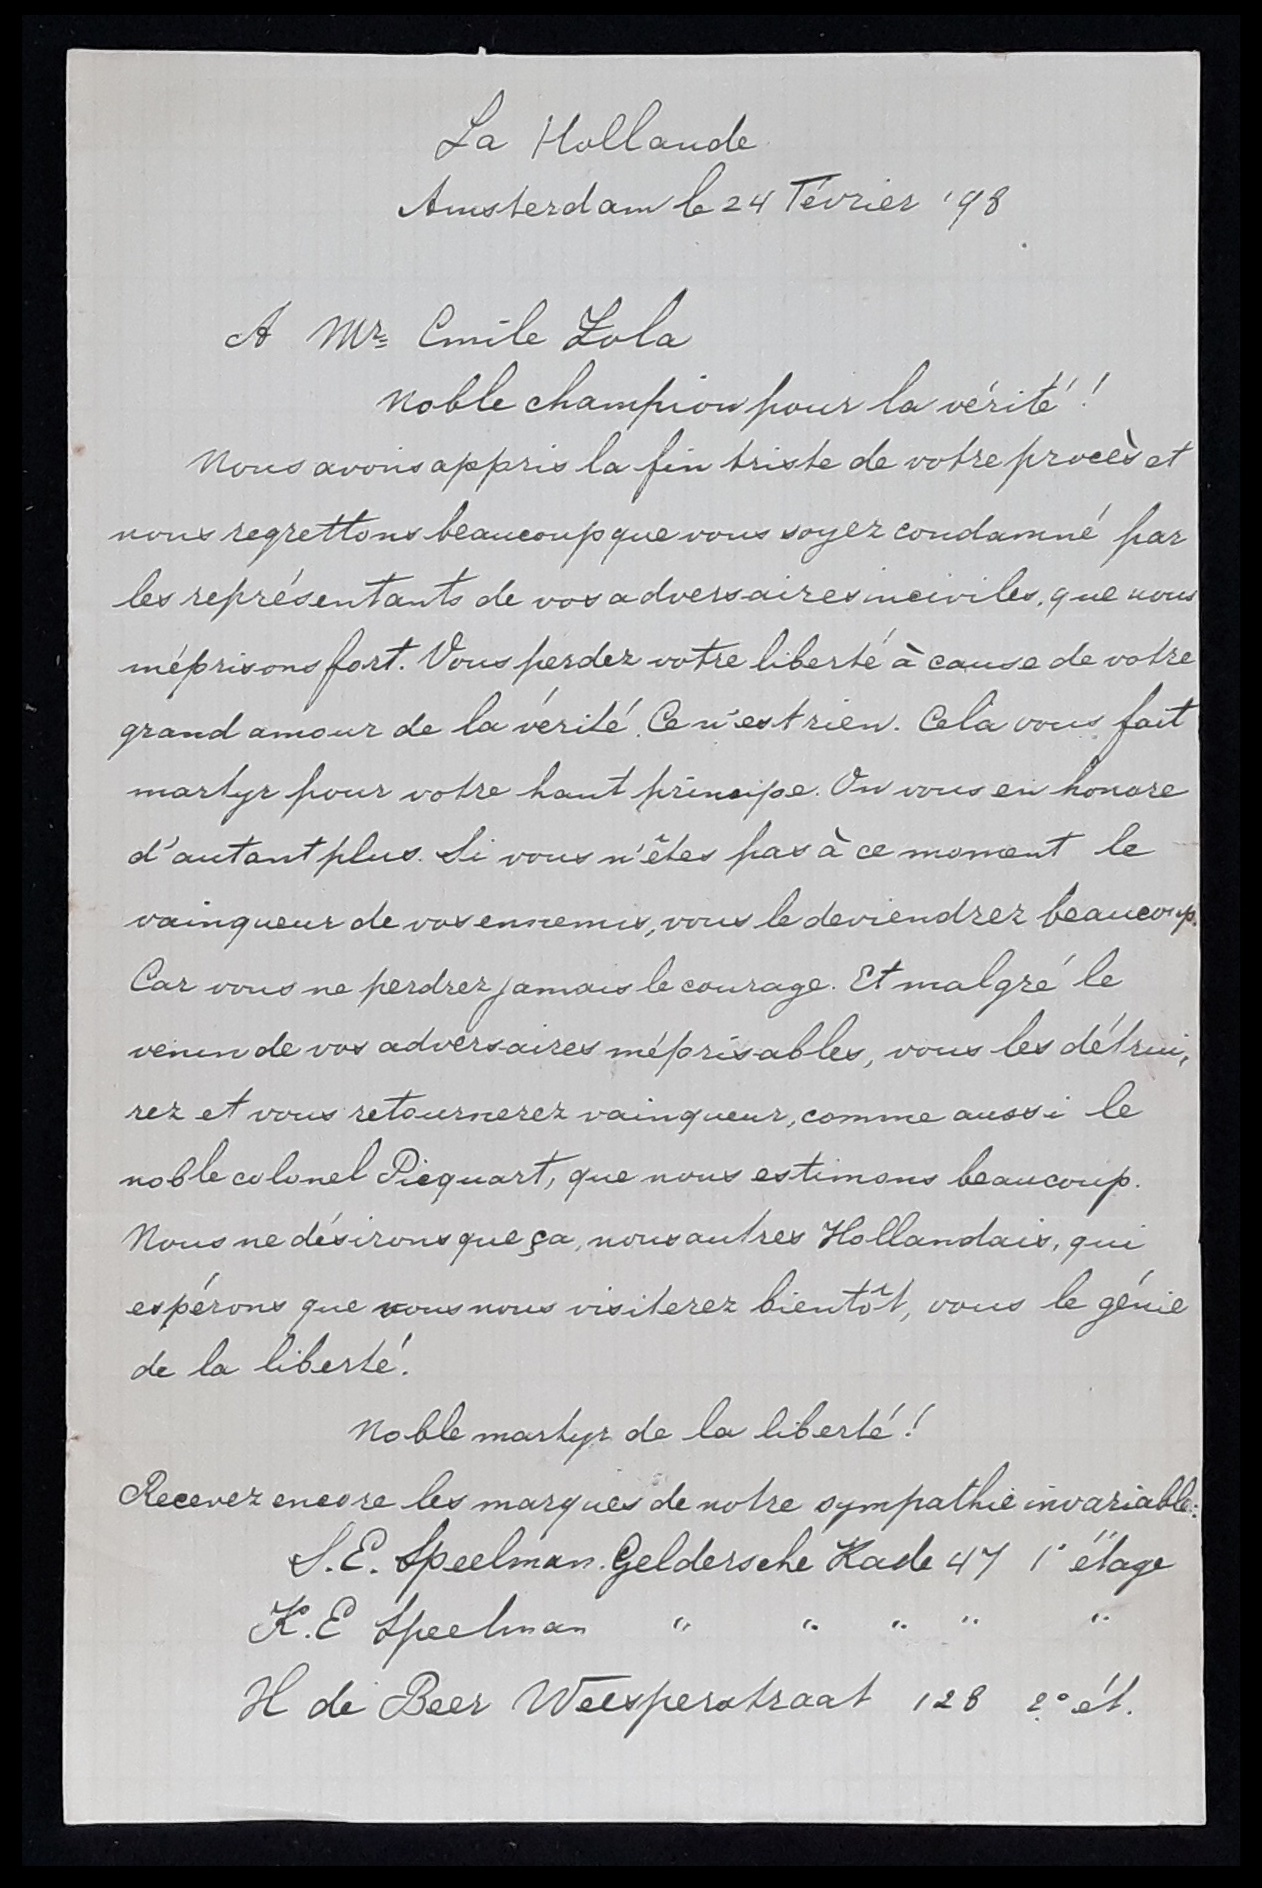 La Hollande
Amsterdam le 24 Février '98
A Mr. Emile Zola
Noble champion pour la vérité!
Nous avons appris la fin triste de votre procès et
nous regrettons beaucoup que vous soyez condamné par
les représentants de vos adversaires inciviles, que nous
méprisons fort. Vous perdez votre liberté à cause de votre
grand amour de la vérité. Ce n'est rien. Cela vous fait
martyr pour votre haut principe. On vous en honore
d'autant plus. Si vous n'êtes pas à ce moment le
vainqueur de vos ennemis, vous le deviendrez beaucoup.
Car vous ne perdrez jamais le courage. Et malgré le
venin de vos adversaires méprisables, vous les détrui,
rez et vous retournerez vainqueur, comme aussi le
noble colonel Picquart, que nous estimons beaucoup.
Nous ne désirons que ça, nous autres Hollandais, qui
espérons que vous nous visiterez bientôt, vous le génie
de la liberté!
Noble martyr de la liberté!
Recevez encore les marques de notre sympathie invariable:
S. E. Speelman. Geldersche Kade 47 1° étage
K. E Speelman " " " " "
H de Beer Weesperstraat 128 2° ét.